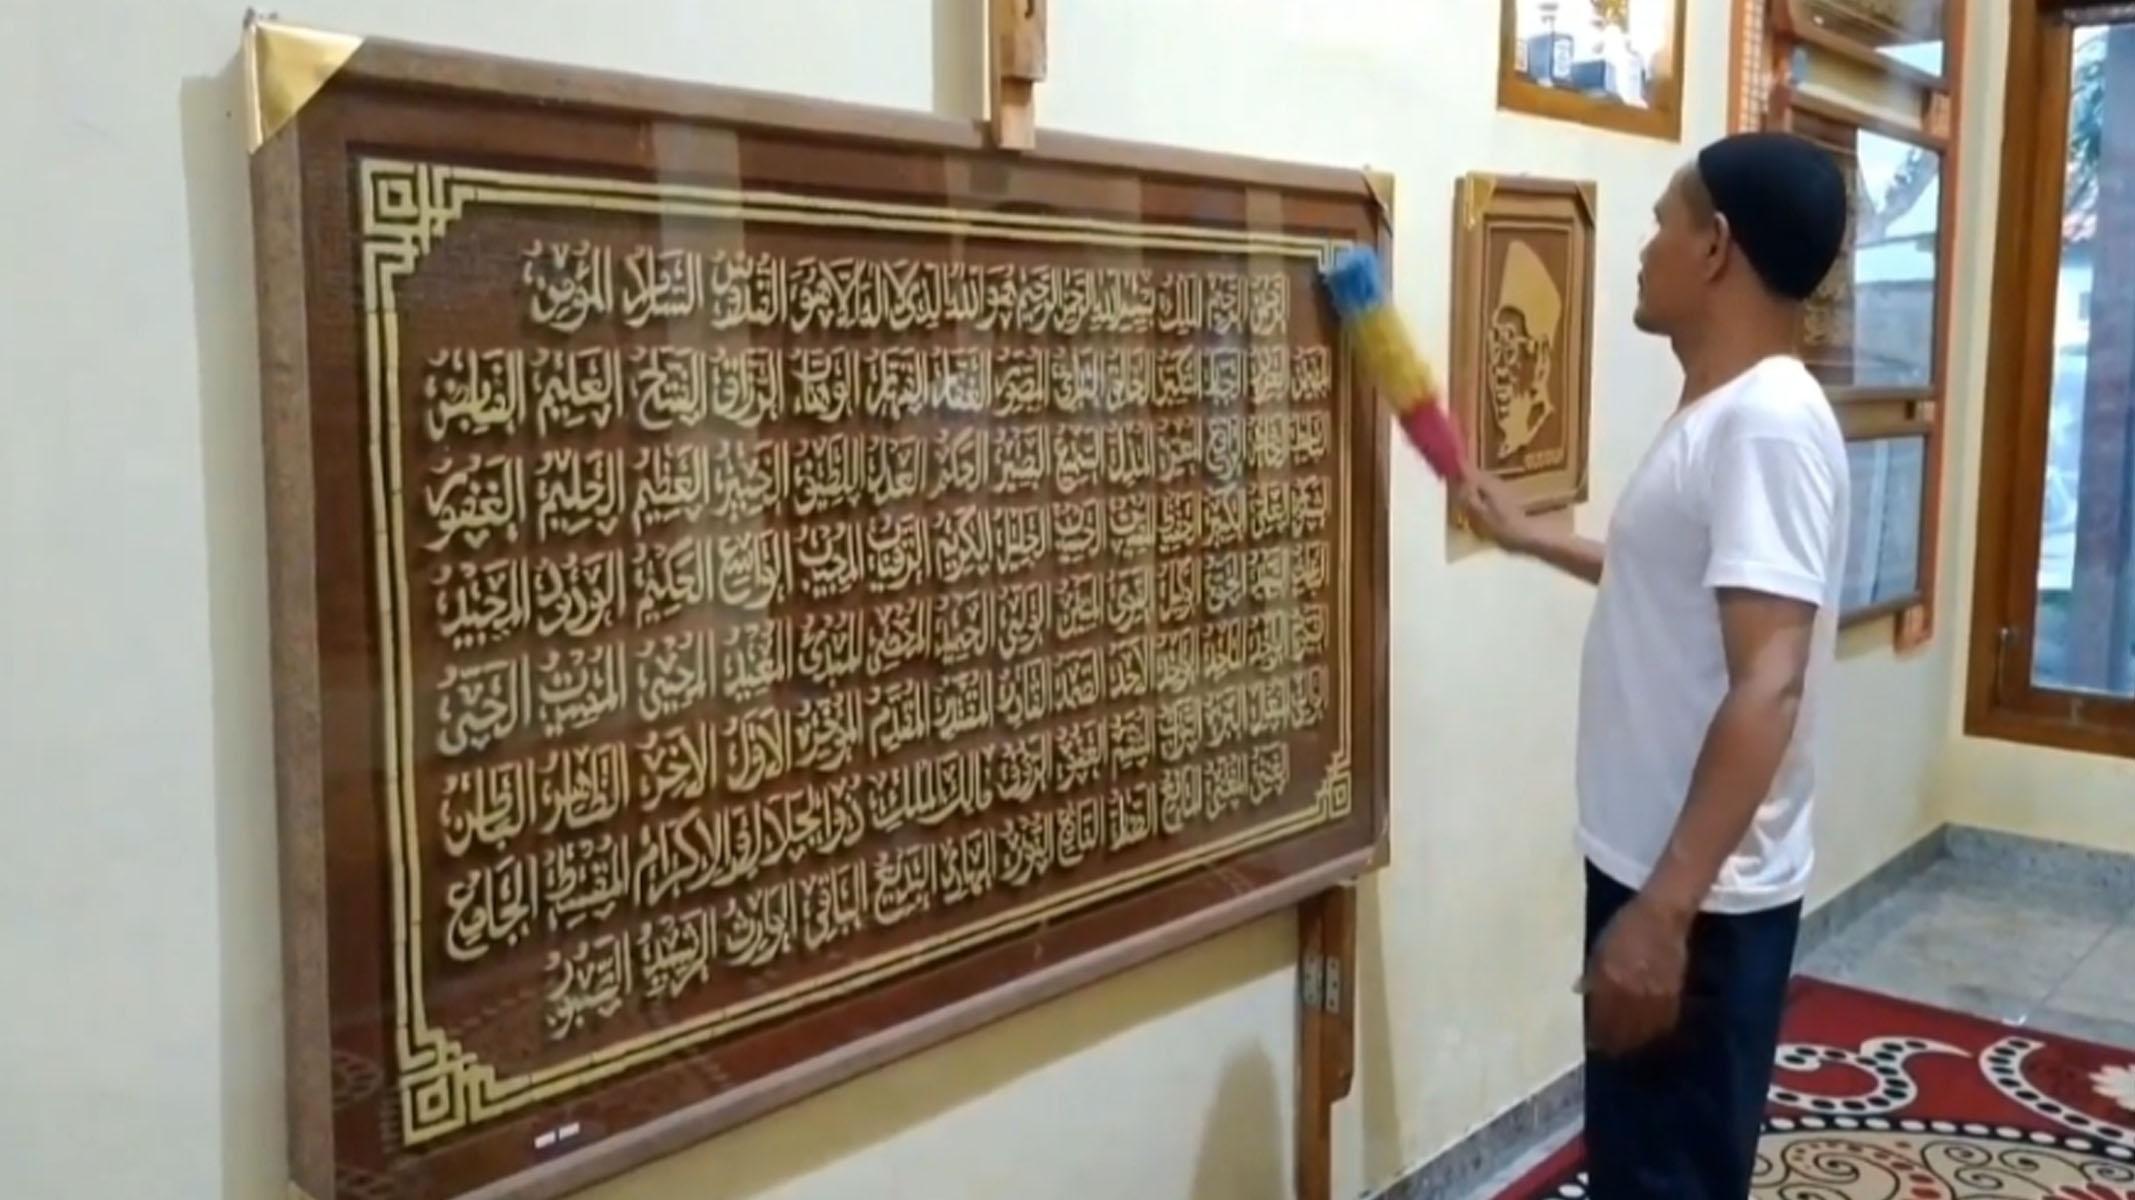 الرحمن الرحيم الملك بسم الله الرحمن الرحيم هو الله الذي لا اله الا هو القدوس السلام المؤمن
المهيمن العزيز الجبار المتكبر الخالق البارئ المصور الغفار القهار الوهاب الرزاق الفتاح العليم القابض
الباسط الخافض الرافع المعز المذل السميع البصير الحكم العدل اللطيف الخبير العظيم الحليم الغفور
الشكور العلي الكبير الحفيظ المقيت الحسيب الجليل الكريم الرقيب المجيب الواسع الحكيم الودود المجيد
الباعث الشهيد الحق الوكيل القوي المتين الولي الحميد المحصي المبدئ المعيد المحيي المميت الحي
القيوم الواجد الماجد الواحد الاحد الصمد القادر المقتدر المقدم المؤخر الاول الاخر الظاهر الباطن
الوالي المتعال البر التواب المنتقم العفو الرؤف مالك الملك ذو الجلال والاكرام المقسط الجامع
الغني المغني المانع الضار النافع النور الهادي البديع الباقي الوارث الرشيد الصبور